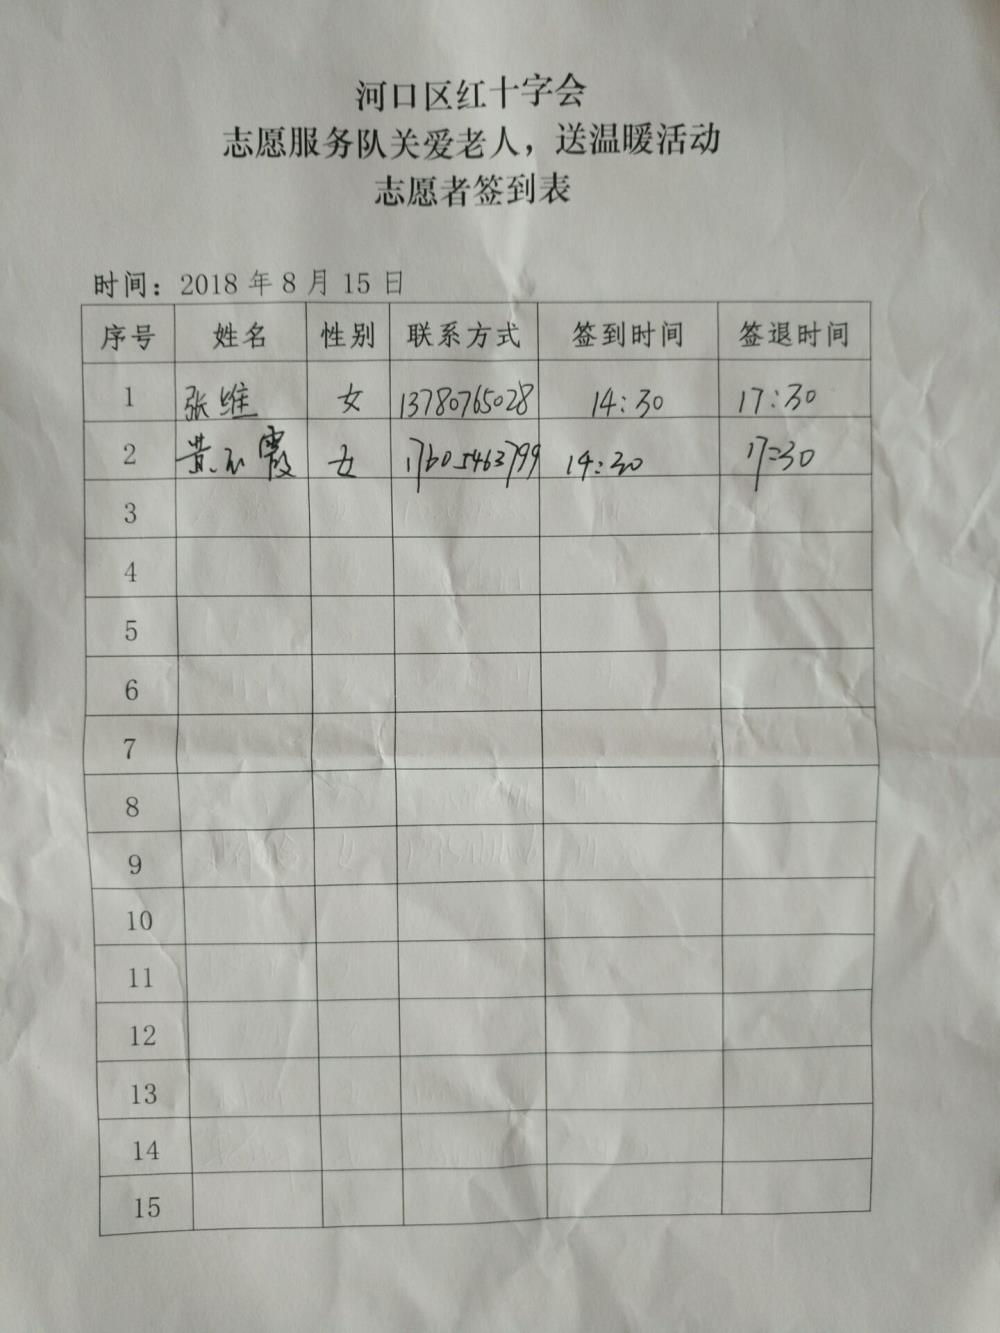 河口区红十字会
志愿服务队关爱老人，送温暖活动
志愿者签到表
时间：2018 年 8 月 15 日
序号 姓名 性别 联系方式 签到时间 签退时间
1 张维 女 13780765028 14:30 17:30
2 黄 霞 女 17605463799 14:30 17:30
3
4
5
6
7
8
9
10
11
12
13
14
15